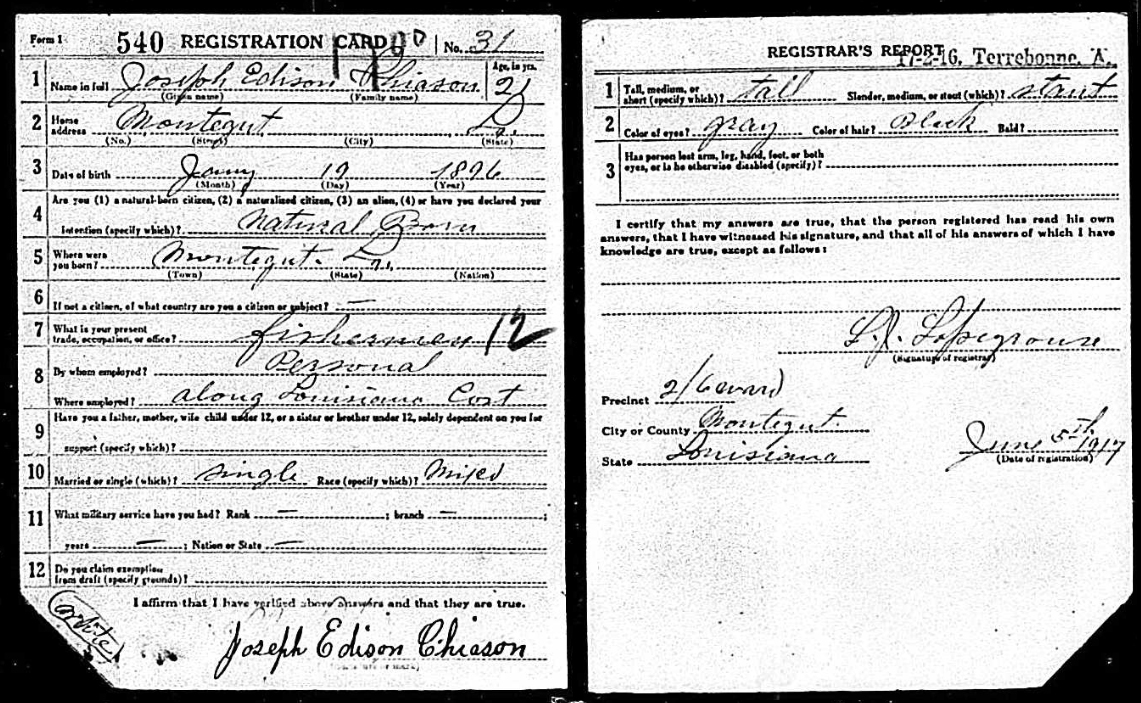 Form 1 540 REGISTRATION CARD No. 31
1 Name in full Joseph Edison Chiason Age, in yrs. 21
(Given name) (Family name)
2 Home address Montegut La.
(No.) (Street) (City) (State)
3 Date of birth Jany 19 1896
(Month) (Day) (Year)
4 Are you (1) a natural-born citizen, (2) a naturalized citizen, (3) an alien, (4) or have you declared your
intention (specify which)? Natural Born
5 Where were you born? Montegut. La.
(Town) (State) (Nation)
6 If not a citizen, of what country are you a citizen or subject? —
7 What is your present trade, occupation, or office? fishermen 12
8 By whom employed? Personal
Where employed? along Louisiana Cost
9 Have you a father, mother, wife child under 12, or a sister or brother under 12, solely dependent on you for
support (specify which)?
10 Married or single (which)? single Race (specify which)? Mixed
11 What military service have you had? Rank — ; branch — ;
years — ; Nation or State —
12 Do you claim exemption from draft (specify grounds)?
I affirm that I have verified above answers and that they are true.
(White)
Joseph Edison Chiason
REGISTRAR'S REPORT
17-2-16, Terrebonne, A.
1 Tall, medium, or short (specify which)? tall Slender, medium, or stout (which)? stout
2 Color of eyes? gray Color of hair? Black Bald?
3 Has person lost arm, leg, hand, foot, or both
eyes, or is he otherwise disabled (specify)?
I certify that my answers are true, that the person registered has read his own
answers, that I have witnessed his signature, and that all of his answers of which I have
knowledge are true, except as follows:
(Signature of registrar)
Precinct 2/6 ward
City or County Montegut.
State Louisiana
June 5th 1917
(Date of registration)